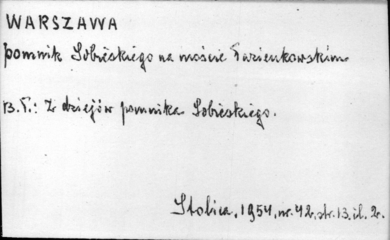 WARSZAWA
pomnik Sobieskiego na moście Łazienkowskim
B. T.: Z dziejów pomnika Sobieskiego.
Stolica, 1954, nr. 42, str. 13, il. 2.